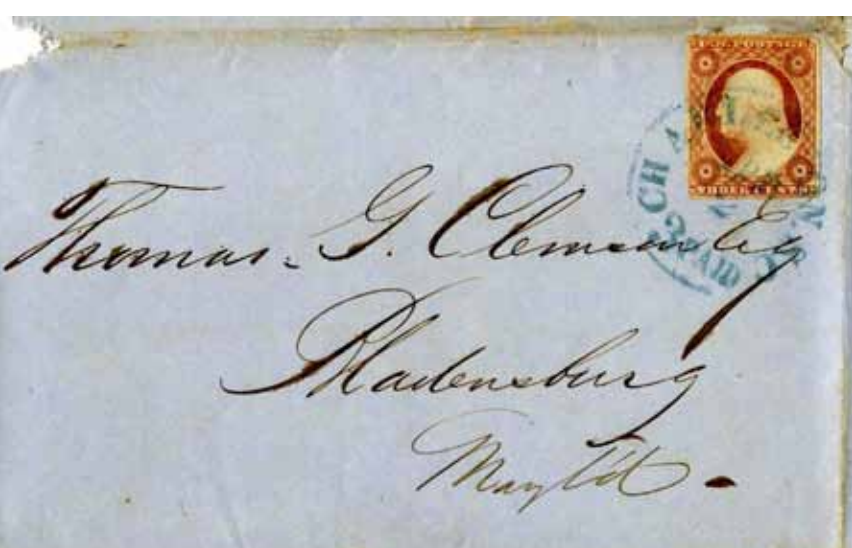 U.S. POSTAGE
THREE CENTS
CH
3 PAID
Thomas. G. Clemson Esq
Bladensburg
Mayld